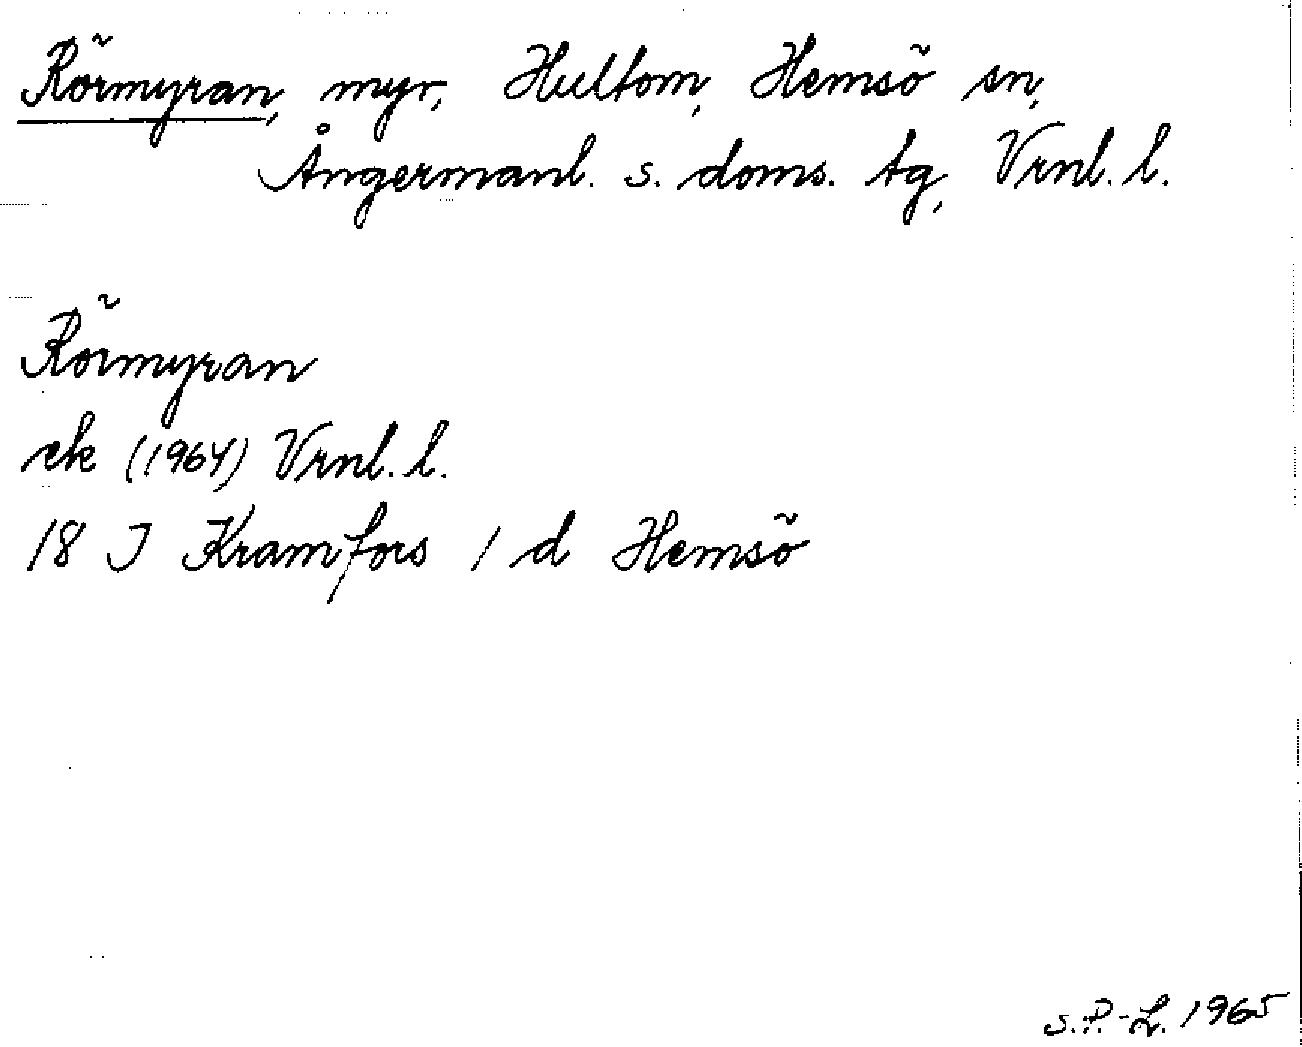 Rörmyran, myr, Hultom, Hemsö sn,
Ångermanl. s. doms. tg, Vrnl. l.
Rörmyran
ek (1964) Vrnl. l.
18 I Kramfors 1 d Hemsö
S.P.-L. 1965